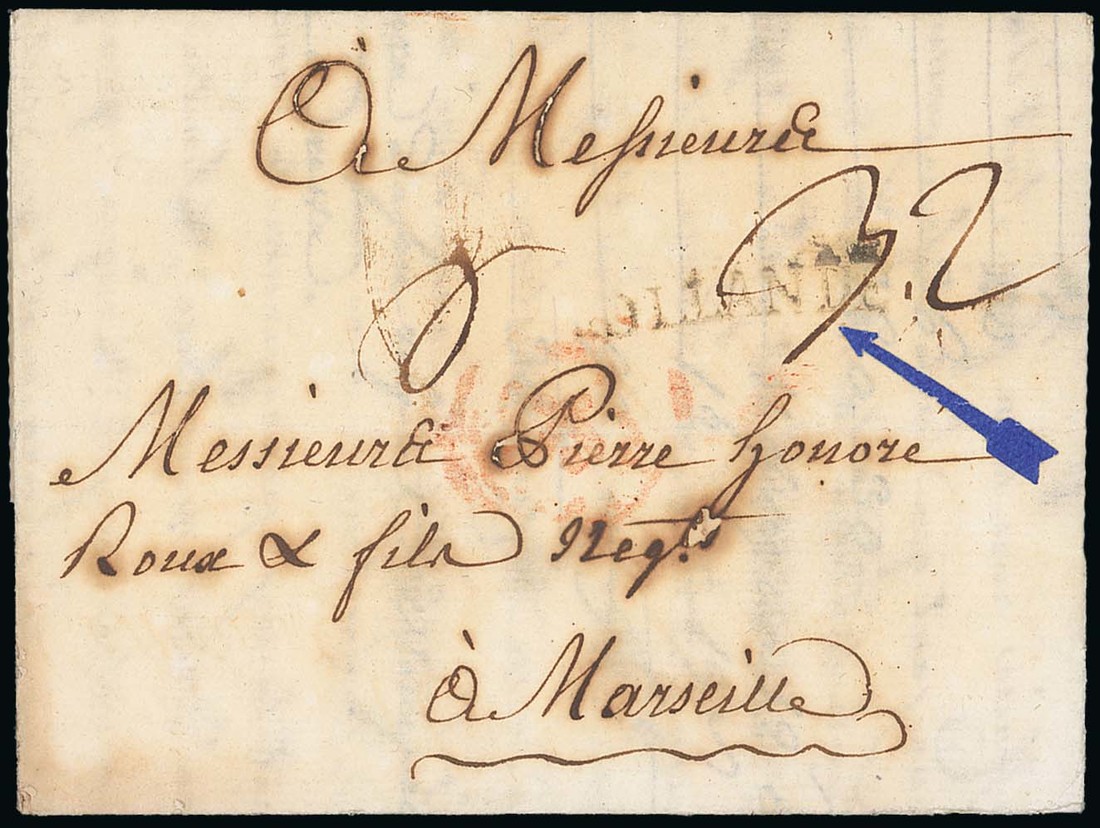 À Messieurs
8
32
Messieurs Pierre honore
Roux & fils Neg.ts
à Marseille